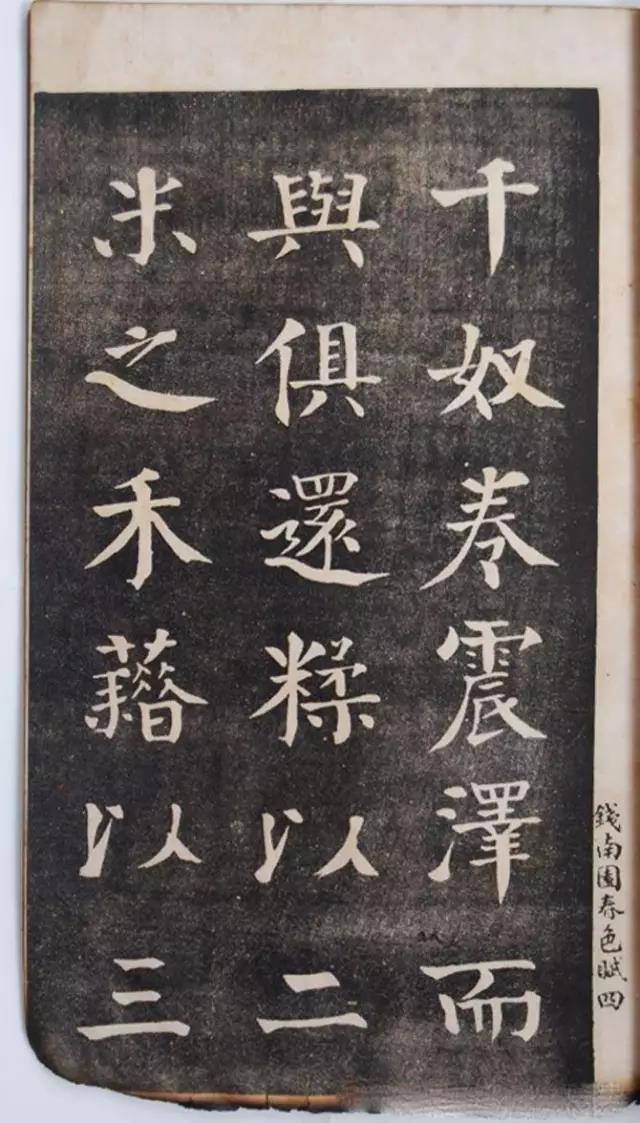 千奴卷震澤而
與俱還糅以二
米之禾藉以三
錢南園春色賦四